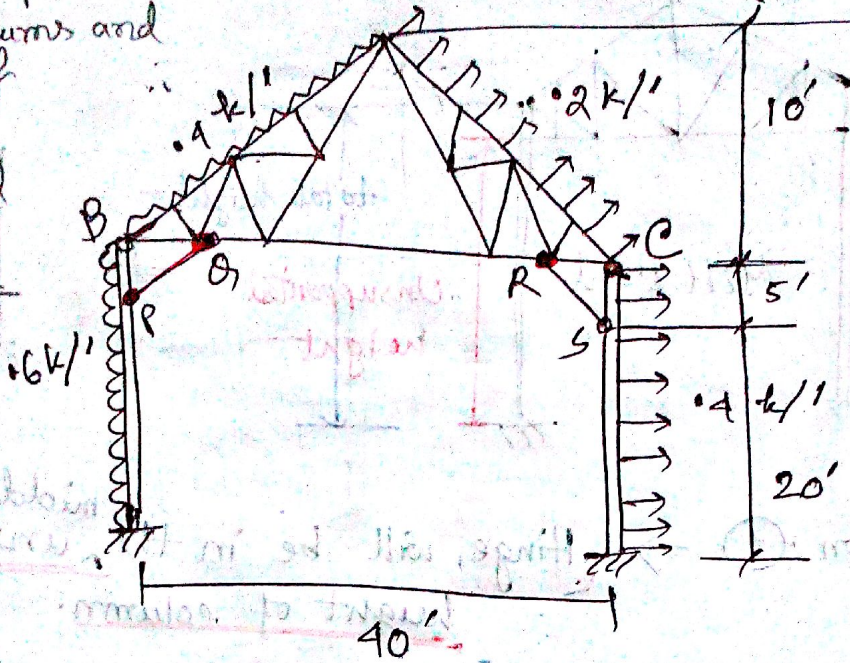 ums and
.4 k/'
.2 k/'
10'
B
Q
R
C
5'
P
S
.6k/'
.4 k/'
20'
40'